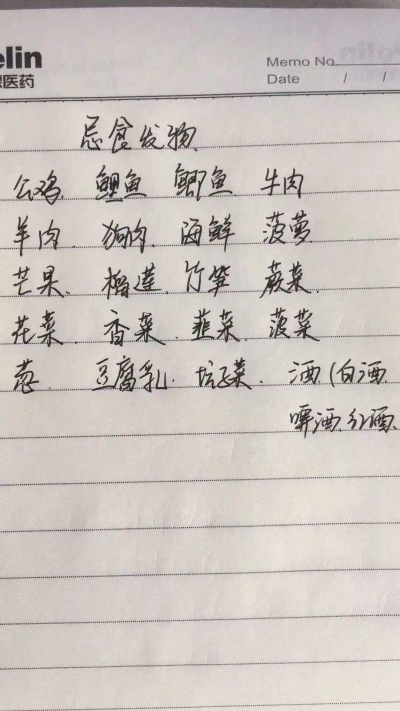 elin
医药
Memo No
Date / /
忌食发物
公鸡、鲤鱼 鲫鱼 牛肉
羊肉、狗肉、海鲜 菠萝
芒果、榴莲、竹笋 蕨菜、
花菜、香菜、韭菜、菠菜
葱、豆腐乳、坛子菜、酒(白酒
啤酒、红酒、